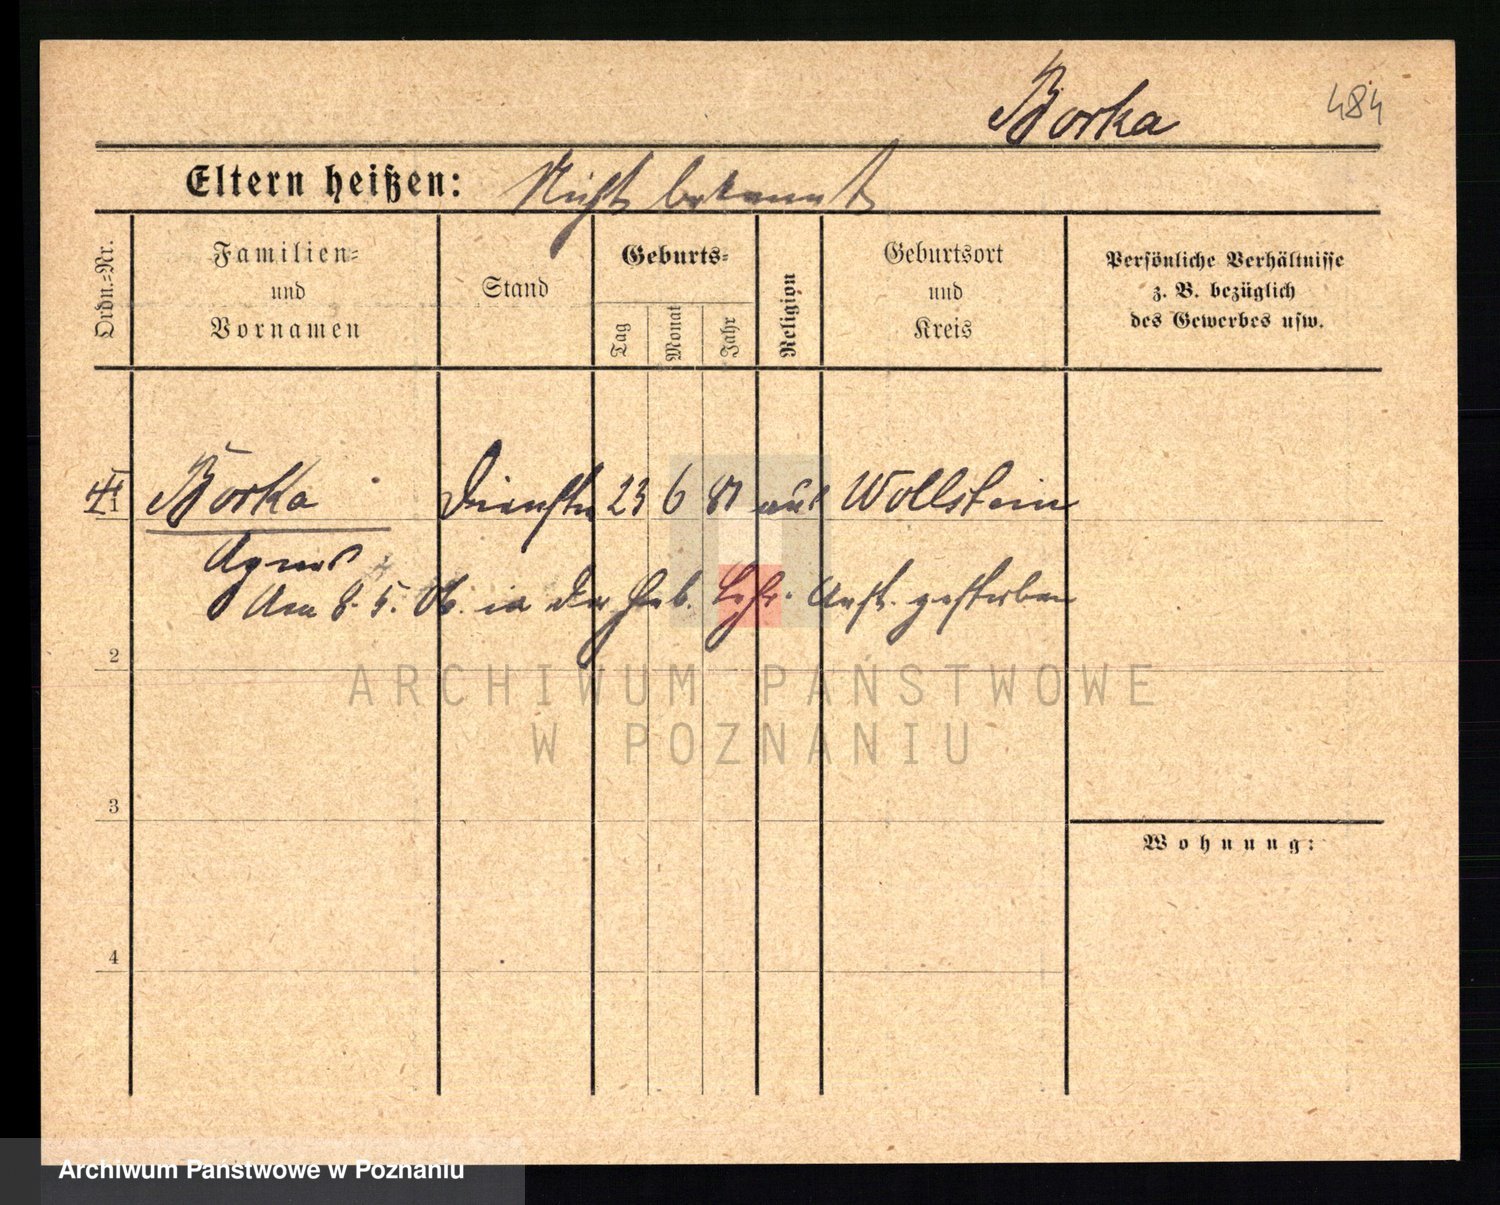 Borka
484
Eltern heißen: Nicht bekannt
Ordn.-Nr.
Familien-
und
Vornamen
Stand
Geburts-
Tag
Monat
Jahr
Religion
Geburtsort
und
Kreis
Persönliche Verhältnisse
z. B. bezüglich
des Gewerbes usw.
1 Borka Dienstm 23 6 81 aus Wollstein
Agnes
Am 8. 5. 06. in der Heb. Lehr. Anst. gestorben
2
ARCHIWUM PAŃSTWOWE
W POZNANIU
3
Wohnung:
4
Archiwum Państwowe w Poznaniu